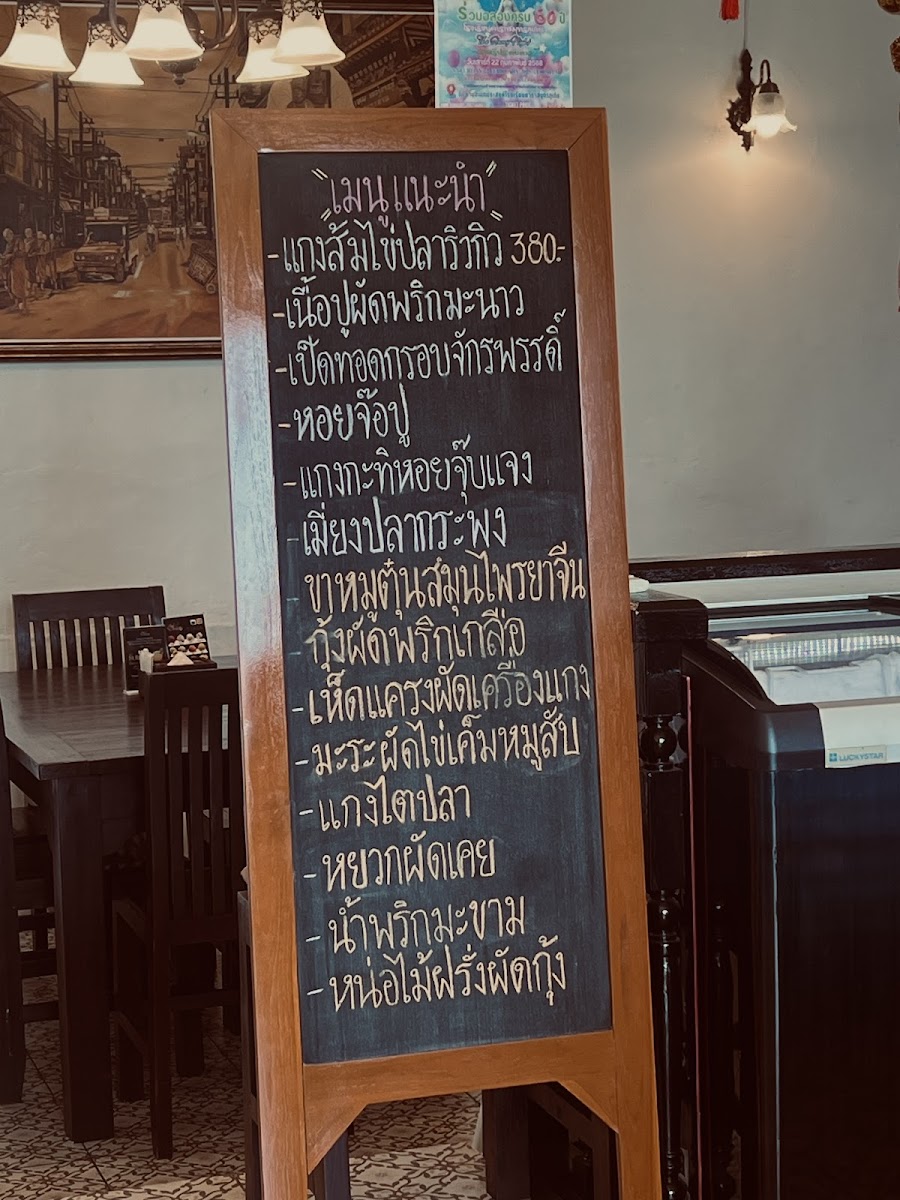 ร่วมฉลองครบ ๖๐ ปี
วันเสาร์ที่ 22 กุมภาพันธ์ 2568
"เมนูแนะนำ"
-แกงส้มไข่ปลาริวกิว 380.-
-เนื้อปูผัดพริกมะนาว
-เป็ดทอดกรอบจักรพรรดิ์
-หอยจ๊อปู
-แกงกะทิหอยจุ๊บแจง
-เมี่ยงปลากระพง
-ขาหมูตุ๋นสมุนไพรยาจีน
-กุ้งผัดพริกเกลือ
-เห็ดแครงผัดเครื่องแกง
-มะระผัดไข่เค็มหมูสับ
-แกงไตปลา
-หยวกผัดเคย
-น้ำพริกมะขาม
-หน่อไม้ฝรั่งผัดกุ้ง
LUCKYSTAR